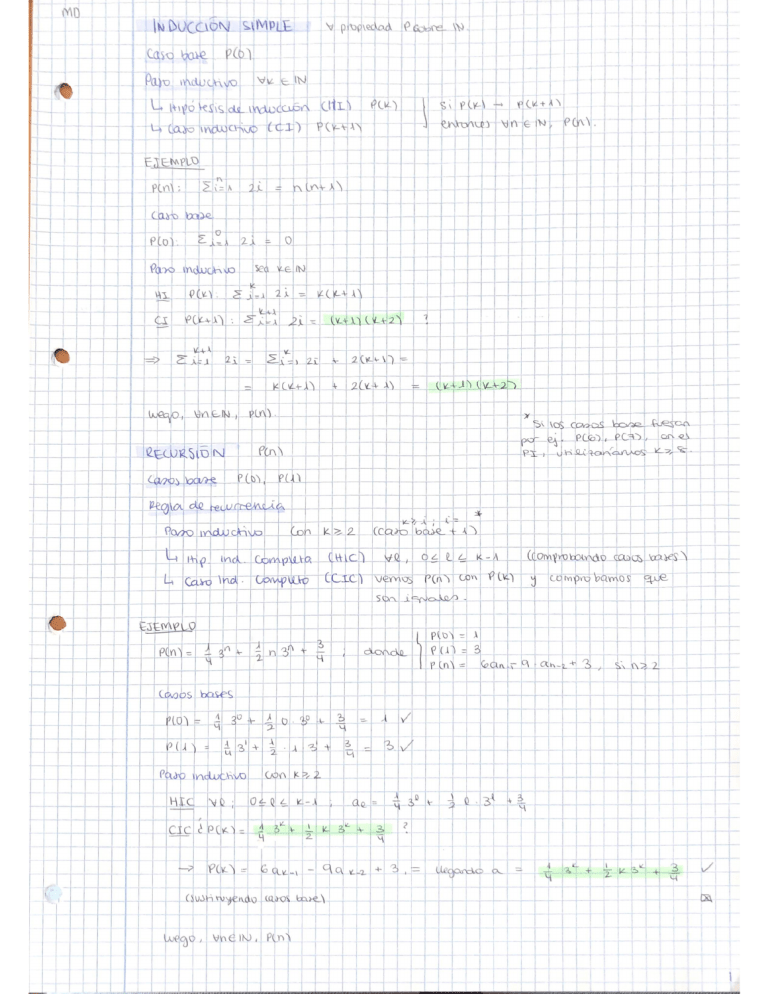 MD
INDUCCIÓN SIMPLE ∀ propiedad P sobre ℕ.
Caso base P(0)
Paso inductivo ∀k ∈ ℕ
↳ Hipótesis de inducción (HI) P(k) } Si P(k) → P(k+1)
↳ Caso inductivo (CI) P(k+1) entonces ∀n ∈ ℕ, P(n).
EJEMPLO
P(n): Σ_{i=1}^{n} 2i = n(n+1)
Caso base
P(0): Σ_{i=1}^{0} 2i = 0
Paso inductivo sea k ∈ ℕ
HI P(k): Σ_{i=1}^{k} 2i = k(k+1)
CI P(k+1): Σ_{i=1}^{k+1} 2i = (k+1)(k+2) ?
⇒ Σ_{i=1}^{k+1} 2i = Σ_{i=1}^{k} 2i + 2(k+1) =
= k(k+1) + 2(k+1) = (k+1)(k+2)
luego, ∀n∈ℕ, P(n).
* Si los casos base fueran
por ej. P(6), P(7), en el
PI, utilizaríamos k ≥ 8.
RECURSIÓN P(n)
Casos base P(0), P(1)
Regla de recurrencia
k≥i; i= *
Paso inductivo Con k ≥ 2 (caso base + 1)
↳ Hip. Ind. Completa (HIC) ∀ℓ, 0 ≤ ℓ ≤ k-1 (comprobando casos bases)
↳ Caso Ind. Completo (CIC) vemos P(n) con P(k) y comprobamos que
son iguales.
EJEMPLO
P(n) = 1/4 3^n + 1/2 n 3^n + 3/4 ; donde { P(0) = 1
P(1) = 3
P(n) = 6a_{n-1} - 9·a_{n-2} + 3, si n≥2
Casos bases
P(0) = 1/4 3^0 + 1/2 0·3^0 + 3/4 = 1 ✓
P(1) = 1/4 3^1 + 1/2 · 1 3^1 + 3/4 = 3 ✓
Paso inductivo con k ≥ 2
HIC ∀ℓ; 0≤ℓ≤ k-1; a_ℓ = 1/4 3^ℓ + 1/2 ℓ·3^ℓ + 3/4
CIC ¿P(k) = 1/4 3^k + 1/2 k 3^k + 3/4 ?
→ P(k) = 6a_{k-1} - 9a_{k-2} + 3, = llegando a = 1/4 3^k + 1/2 k 3^k + 3/4 ✓
(sustituyendo casos base)
luego, ∀n∈ℕ, P(n)
1